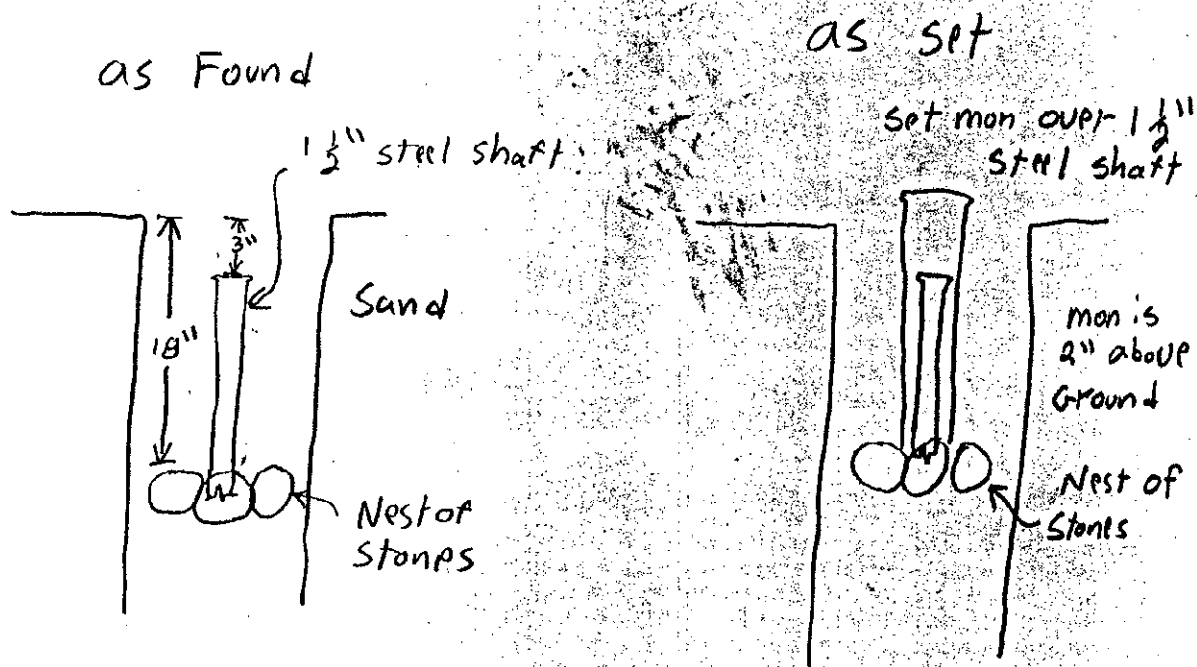 as Found
1 1/2" steel shaft.
3"
18"
Sand
Nest of
Stones
as set
set mon over 1 1/2"
steel shaft
mon is
2" above
Ground
Nest of
Stones